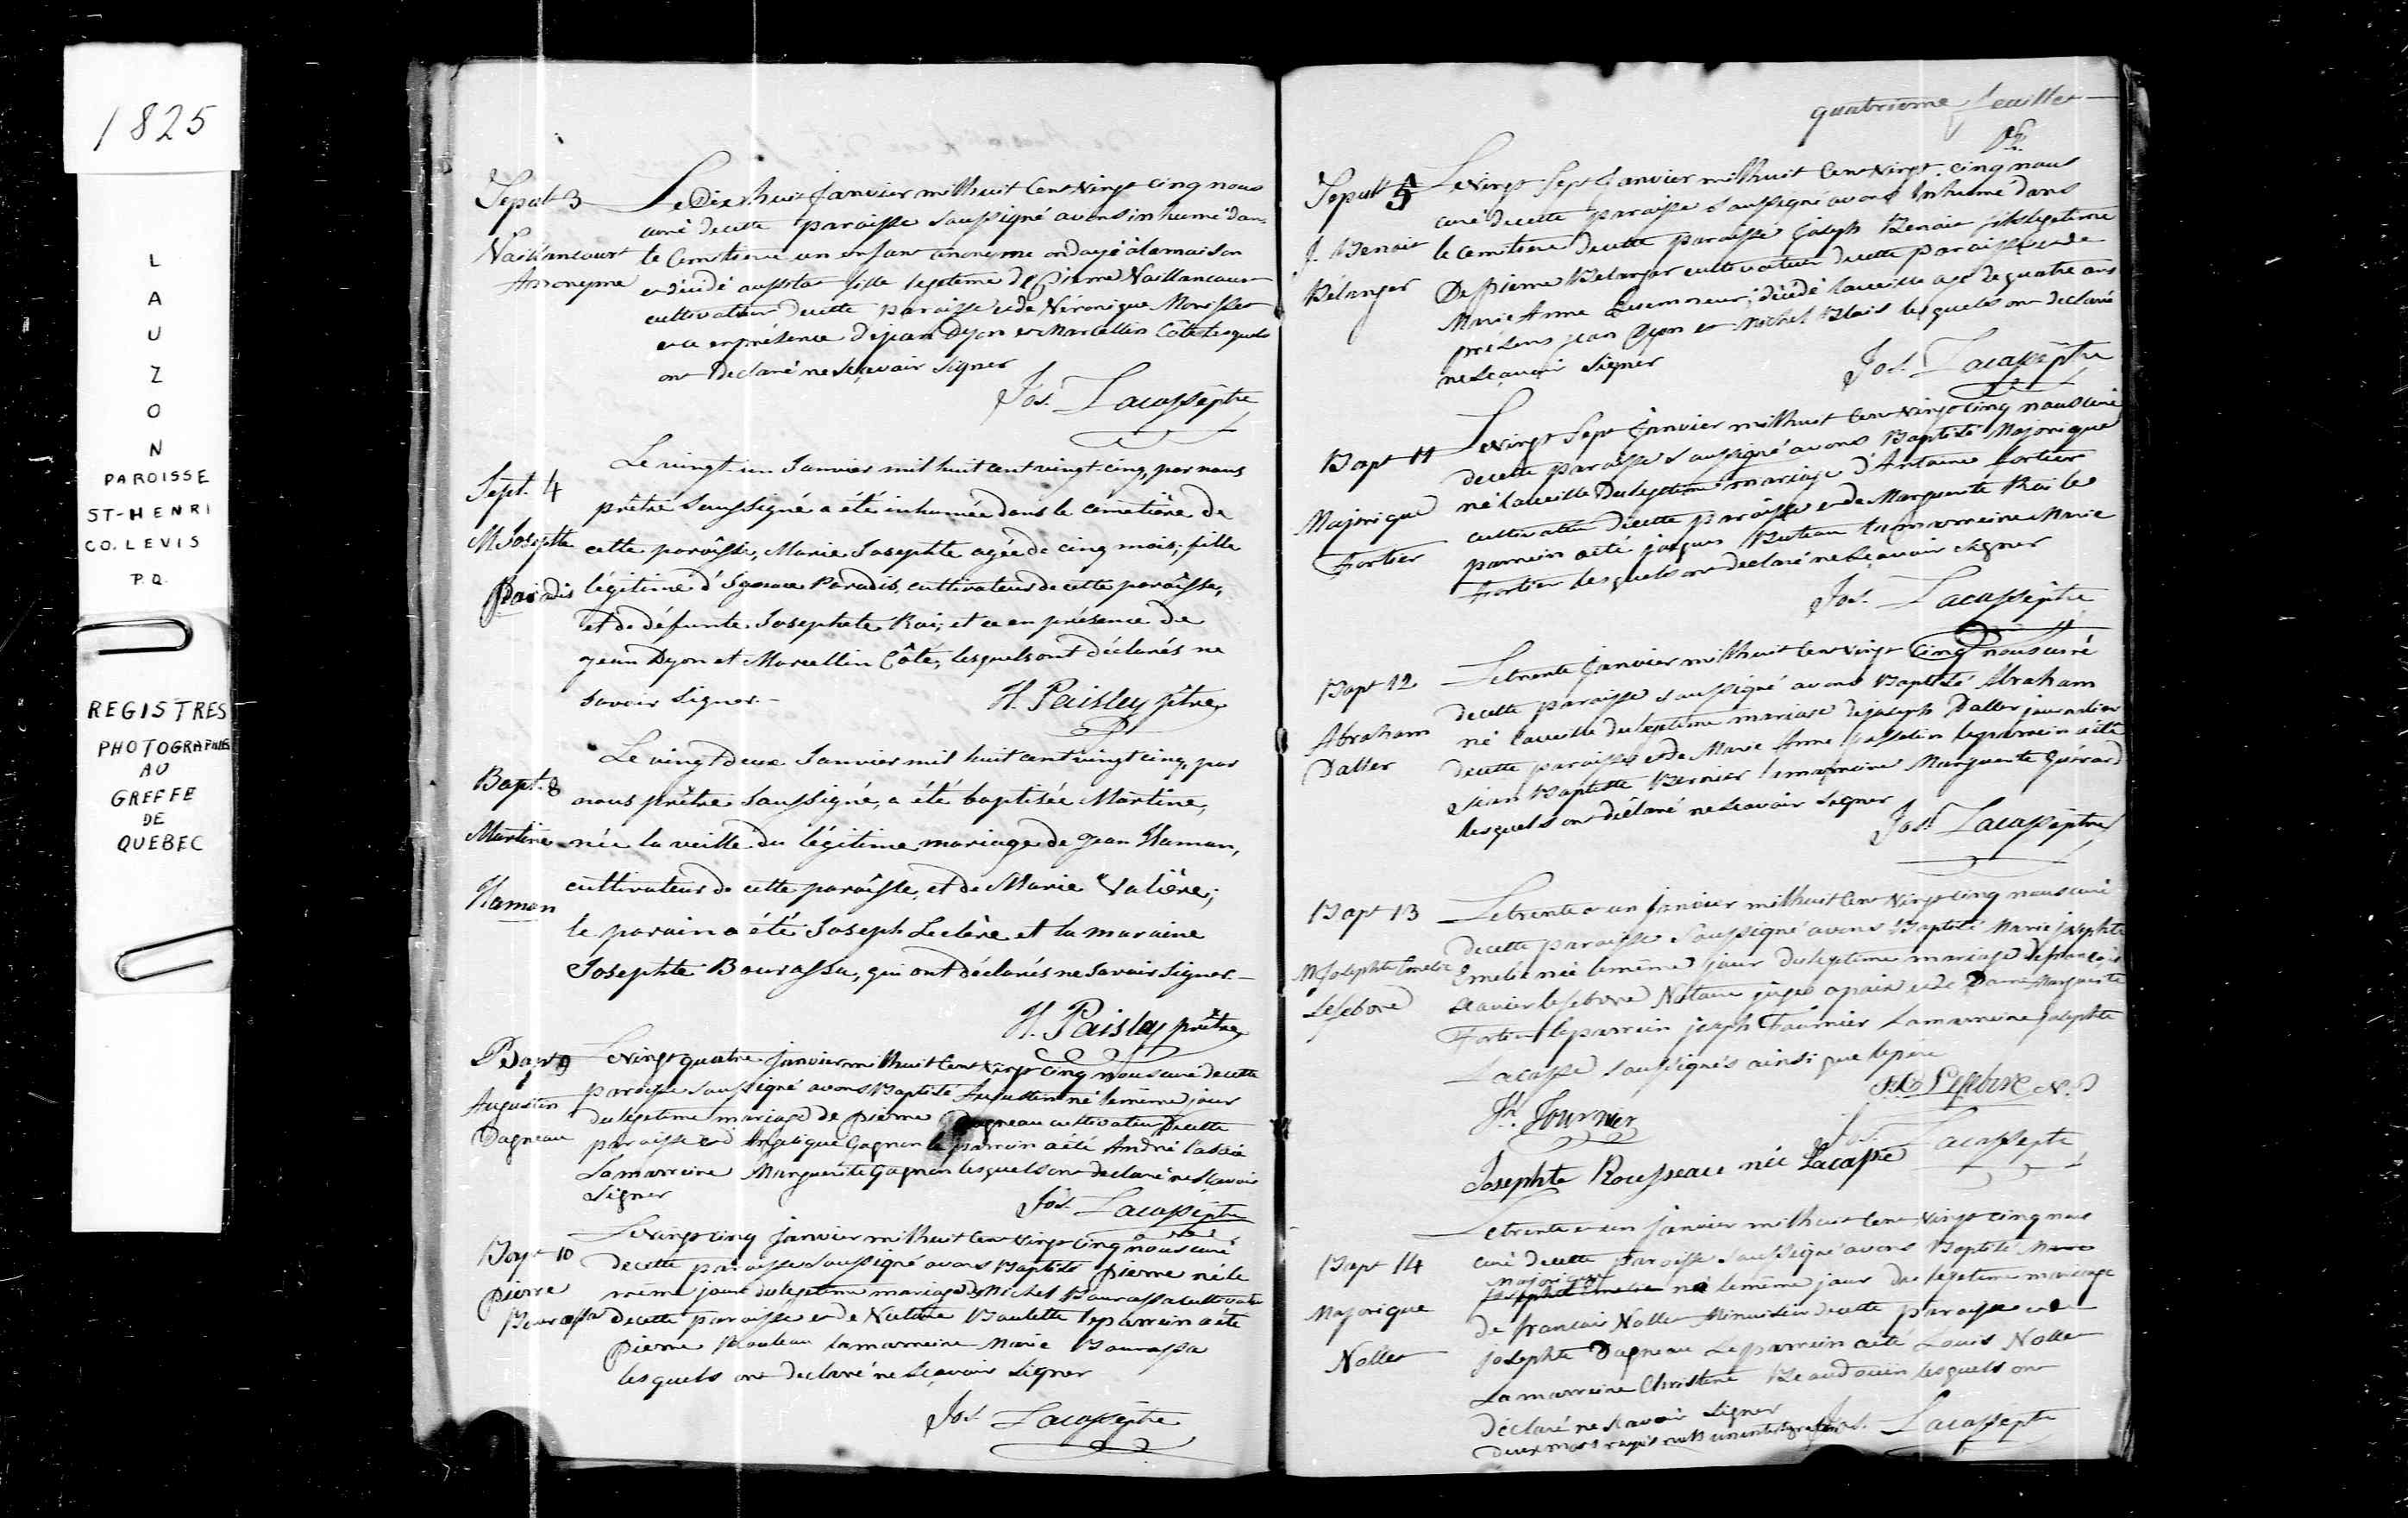 1825
L
A
U
Z
O
N
PAROISSE
ST-HENRI
CO. LEVIS
P.Q.
REGISTRES
PHOTOGRAPHIES
AU
GREFFE
DE
QUEBEC
Sepult 3
Vaillancourt
Anonyme
Le Dix huit Janvier mil huit Cent vingt cinq nous
curé de cette paroisse Soussigné avons inhumé dans
le Cimetiere un enfant anonyme ondoyé à la maison
et décédé aussitot fille legitime de Pierre Vaillancourt
cultivateur de cette paroisse et de Véronique Morisset
et ce en présence de jean Dyon et Marcellin Côté lesquels
ont Declaré ne Sçavoir Signer
Jos. Lacasse ptre
Sept. 4
M. Josephte
Paradis
Le vingt-un Janvier mil huit cent vingt cinq, par nous
prêtre Soussigné a été inhumée dans le cimetière de
cette paroisse, Marie Josephte agée de cinq mois, fille
légitime d'Ignace Paradis, cultivateur de cette paroisse,
et de défunte Josephte Roi; et ce en présence de
Jean Dyon et Marcellin Côté, lesquels ont déclarés ne
savoir signer.-
H. Paisley ptre
Bapt. 8
Martine
Hamon
Le vingt deux Janvier mil huit cent vingt cinq, par
nous prêtre Soussigné, a été baptisée Martine,
née la veille du légitime mariage de Jean Hamon,
cultivateur de cette paroisse, et de Marie Valière;
le parain a été Joseph Leclère et la maraine
Josephte Bourassa, qui ont déclarés ne savoir signer.-
H. Paisley prêtre
Bapt 9
Augustin
Dagneau
Le vingt quatre Janvier mil huit Cent vingt cinq nous curé de cette
paroisse soussigné avons Baptisé Augustin né le même jour
du legitime mariage de pierre Dagneau cultivateur De cette
paroisse et d'Angelique Gagnon le parrain a été André
La marreine Marguerite Gagnon lesquels ont declaré ne Sçavoir
Signer
Jos. Lacasse ptre
Bapt 10
pierre
Bourassa
Le vingt cinq Janvier mil huit Cent vingt cinq nous curé
De cette paroisse soussigné avons Baptisé pierre né le
même jour du legitime mariage de Michel Bourassa cultivateur
de cette paroisse et de Boulette le parrein a été
pierre Rouleau la marreine Marie Bourassa
lesquels ont declaré ne Sçavoir signer
Jos. Lacasse ptre
quatrieme feuillet
Sepult 5
J. Benoit
Bélanger
Le vingt Sept Janvier mil huit Cent vingt-cinq nous
curé de cette paroisse soussigné avons Inhumé dans
le cemitiere de cette paroisse joseph Benoit fils legitime
De pierre Belanger cultivateur de cette paroisse et de
Marie Anne décédé la veille agé de quatre ans
présens jean Dyon et Michel Blais lesquels ont declaré
ne Sçavoir signer
Jos. Lacasse ptre
Bapt 11
Majorique
Fortier
Le vingt Sept Janvier mil huit Cent vingt cinq nous curé
de cette paroisse soussigné avons Baptisé Majorique
né la veille Du legitime mariage d'Antoine Fortier
cultivateur de cette paroisse et de Marguerite Roi le
parrein a été jacques Buteau la marreine Marie
Fortier lesquels ont declaré ne Sçavoir signer
Jos. Lacasse ptre
Bapt 12
Abraham
Daller
Le trente Janvier mil huit Cent vingt Cinq nous curé
de cette paroisse soussigné avons Baptisé Abraham
né la veille du legitime mariage de joseph Daller journalier
de cette paroisse et de Marie Anne le parrein a été
Jean Baptiste Bernier la marreine Marguerite Guérard
lesquels ont déclaré ne Sçavoir signer
Jos. Lacasse ptre
Bapt 13
M Josephte Emelie
Lefebvre
Le trente et un Janvier mil huit Cent Vingt cinq nous curé
de cette paroisse Soussigné avons Baptisé Marie josephte
Emelie née le même jour du legitime mariage de françois
Xavier Lefebvre Notaire juge a paix et de Dame Marguerite
Fortier le parrein joseph Fournier La marreine josephte
Lacasse Soussignés ainsi que le père
F.X Lefebvre N.P
Jh. Fournier
Jos. Lacasse ptre
Josephte Rousseau née Lacasse
Bapt 14
Majorique
Nollet
Le trente et un Janvier mil huit Cent Vingt cinq nous
curé de cette Paroisse Soussigné avons Baptisé Marie
Majorique
josephte Emelie né le même jour du legitime mariage
de francois Nollet Menuisier de cette paroisse et de
Josephte Dagneau Le parrein a été Louis Nollet
La marreine Christine Beaudouin lesquels ont
déclaré ne Sçavoir Signer
Jos. Lacasse ptre
Deux mots rayés nuls un interligne bon